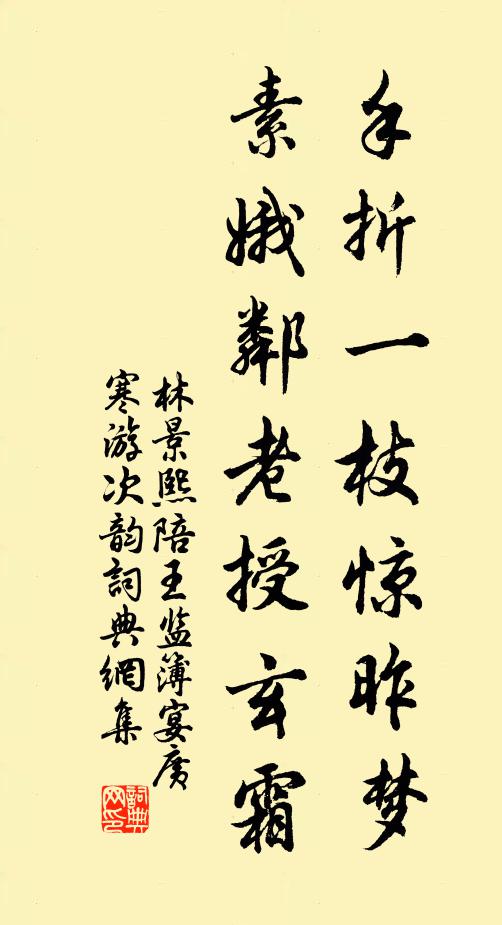 手折一枝惊昨梦
素娥鄰老授玄霜
林景熙陪王监簿宴广
寒游次韵詞典網集
詞典网印